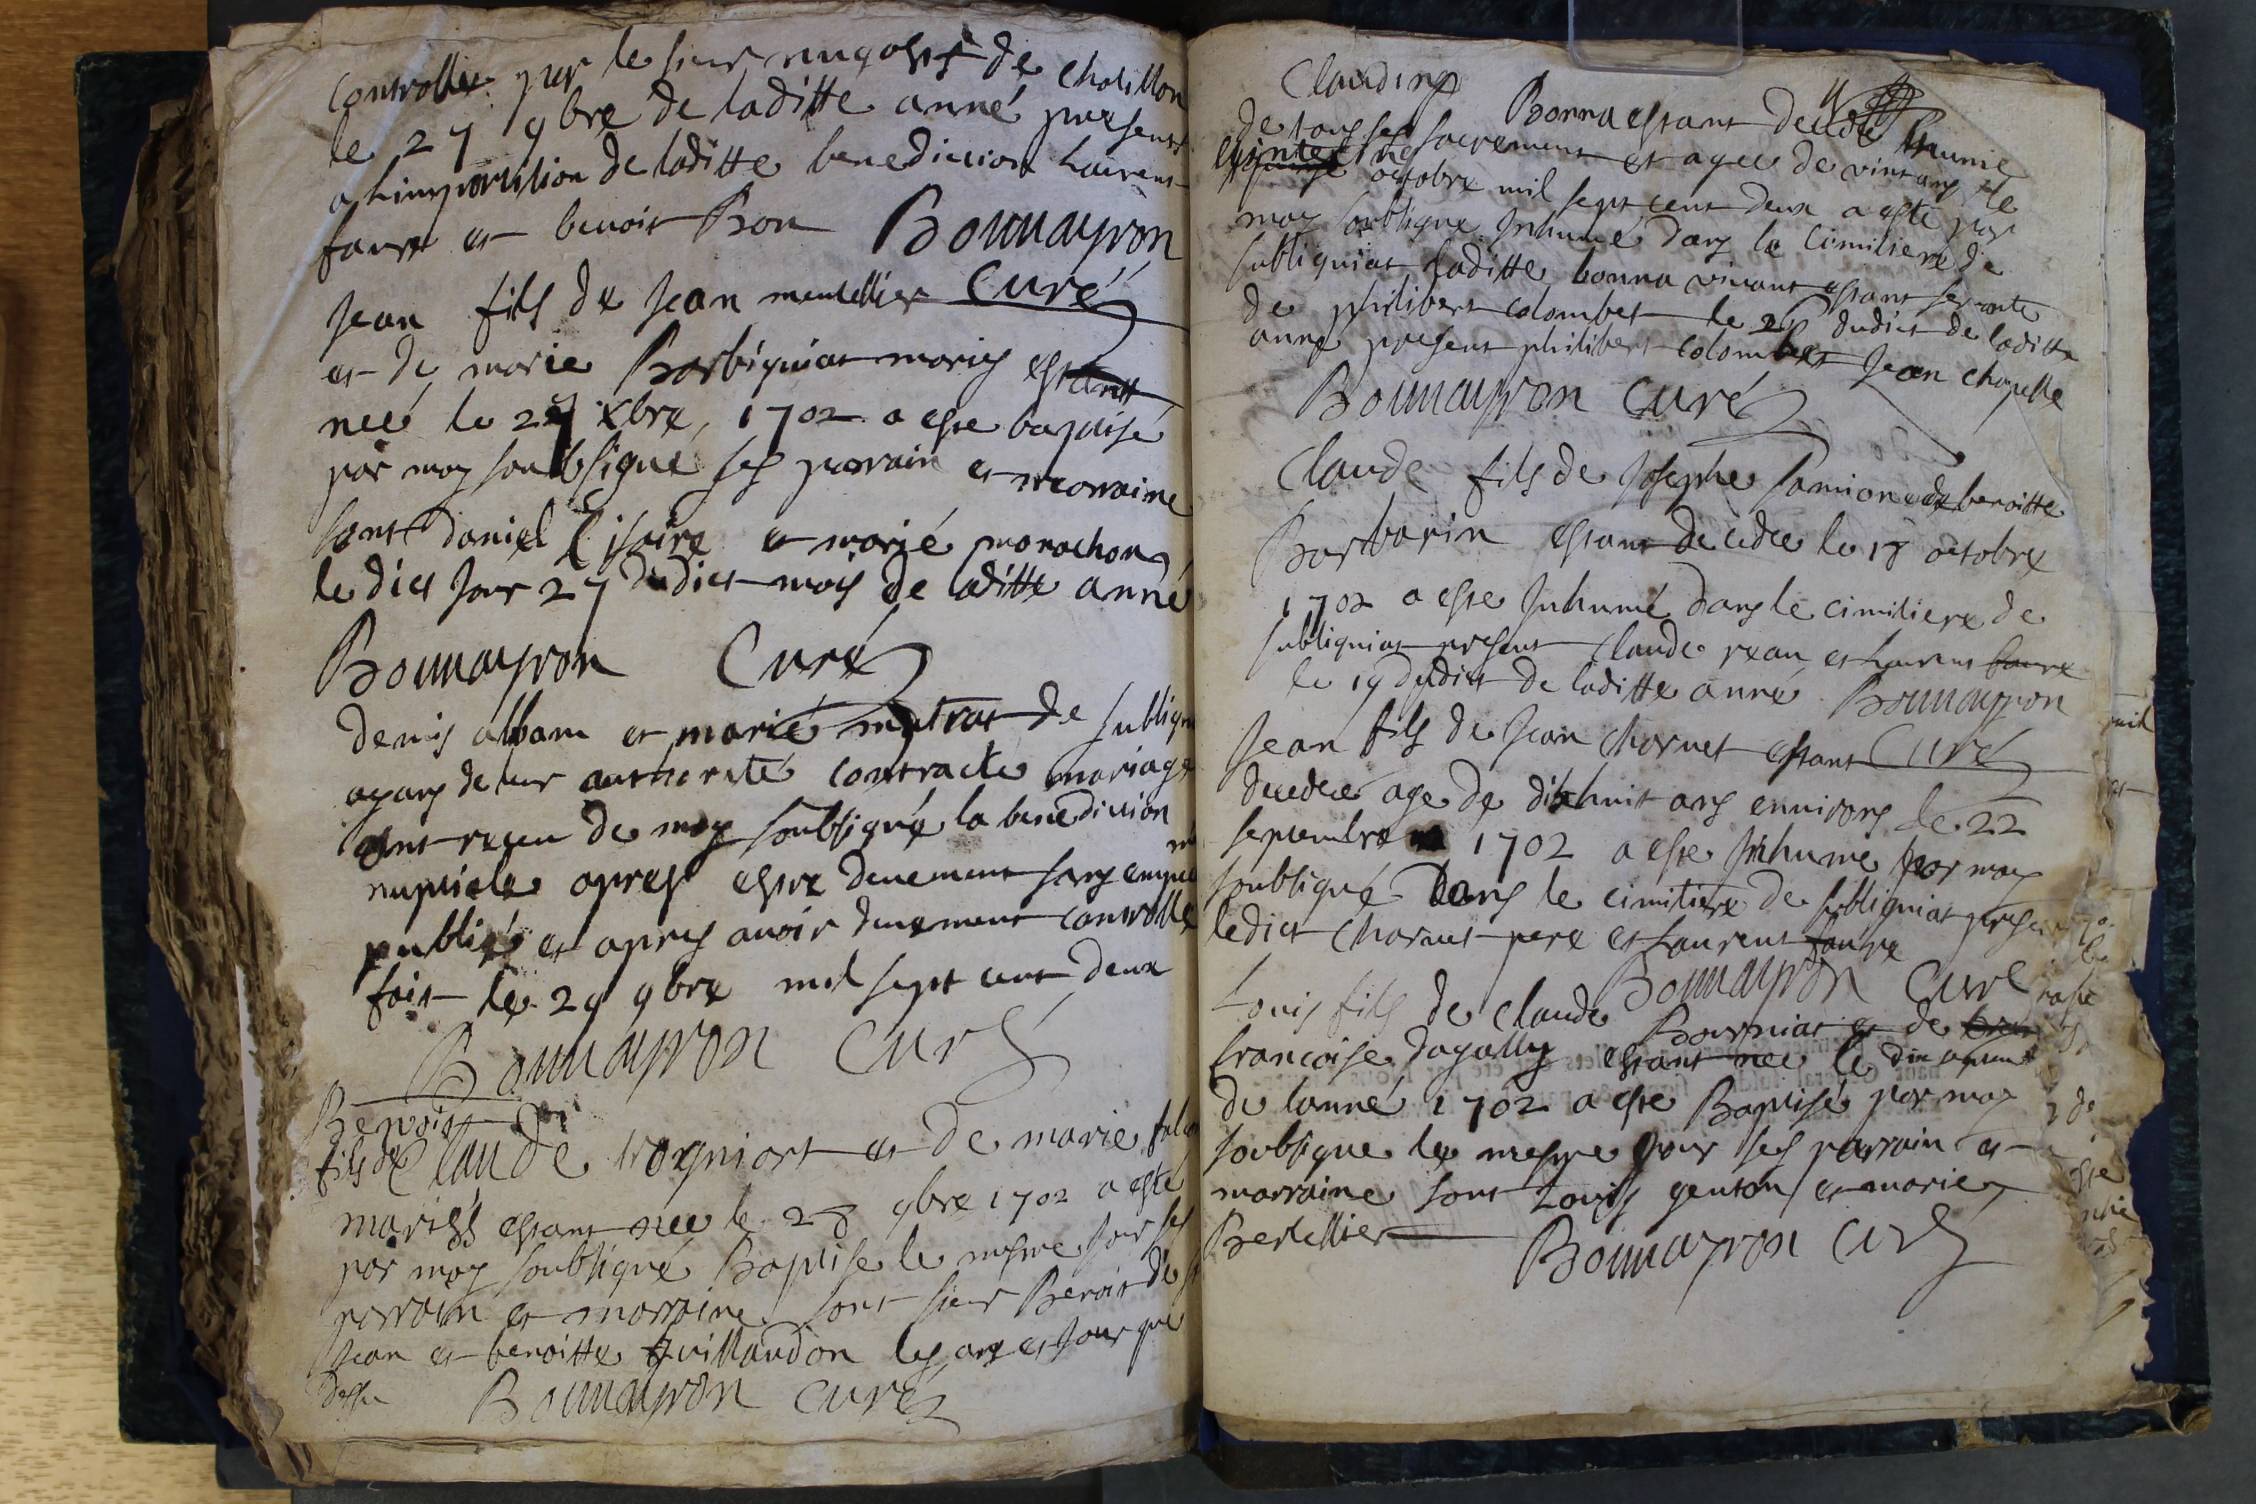 controlle par le sieur de Chatillon
le 27 9bre de laditte anné presents
a limposition de laditte benediction Laurent
faure et benoit Bon Bonnayron
Curé
Jean fils de Jean mentellier
et de marie Barbiguiat mariés estant
neé le 27 xbre 1702 a este baptisé
par moy soubsigné ses parain et marraine
sont daniel lisaire et marié marachon
le dict Jour 27 dudict mois de laditte anné
Bonnayron Curé
denis albam et marié matrat de subligni
ayans de leur authorité contracte mariage
ont reçeu de moy soubsigné la benediction
nuptiale apres estre deuement sans empe
publiés et apres auoir deuement controlle
fait le 29 9bre mil sept cent deux
Bonnayron Curé
Benoist
fils de Claude et de marie
mariés estant neé le 28 9bre 1702 a este
par moy soubsigné Baptise le mesme Jour ses
parrain et marraine sont sieur Benoit de
Jean et benoitte Guillaudon les ans et Jour que
dessu Bonnayron Curé
Claudine Bonna estant decedé munie
de tous ses sacrement et agee de vint ans le
octobre mil sept cent deux a esté par
moy soubsigné Inhumé dans le Cimitiere de
subligniat laditte bonna viuant estant seruante
de philibert colombet le 26 dudict de laditte
anné present philibert colombet Jean chapelle
Bonnayron Curé
Claude fils de Josephe Samion et de benoitte
Barbarin estant decedee le 18 octobre
1702 a este Inhumé dans le cimitiere de
subligniat present Claude rean et Laurens faure
le 19 dudict de laditte anné Bonnayron
Curé
Jean fils de Jean Charnet estant
decedeé age de dixhuit ans enuirons le 22
septembre 1702 a este Inhumé par moy
soubsigné dans le cimitiere de subligniat present
ledict Charnet pere et Laurens faure
Bonnayron Curé
Louis fils de Claude Bourniat et de
francoise dagally estant neé le dix
de lanné 1702 a este Baptisé par moy
soubsigne le mesme jour ses parrain et
marraine sont Louis genton et marie
Bertellier Bonnayron Curé